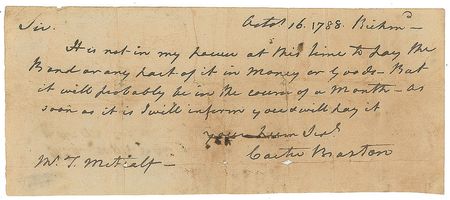 Sir. Octob 16. 1788. Richmd
It is not in my power at this time to pay the
Bond or any part of it in Money or Goods - But
it will probably be in the course of a Month - as
soon as it is I will inform you & will pay it
your
Mr. T. Metcalf - Carter Braxton